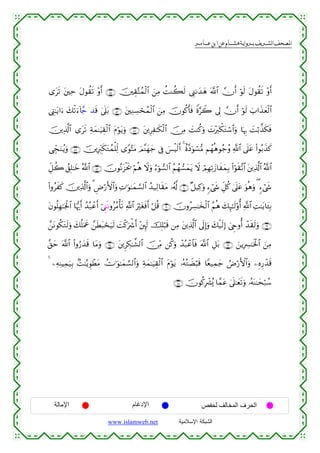 المصحف الشريف برواية هشام عن ابن عامر
أَوۡ تَقُولَ لَوۡ أَنَّ ٱللَّهَ هَدَىٰنِي لَكُنتُ مِنَ ٱلۡمُتَّقِينَ أَوۡ تَقُولَ حِينَ تَرَى
ٱلۡعَذَابَ لَوۡ أَنَّ لِي كَرَّةٗ فَأَكُونَ مِنَ ٱلۡمُحۡسِنِينَ بَلَىٰ قَدۡ جَآءَتۡكَ ءَايَٰتِي
فَكَذَّبۡتَ بِهَا وَٱسۡتَكۡبَرۡتَ وَكُنتَ مِنَ ٱلۡكَٰفِرِينَ وَيَوۡمَ ٱلۡقِيَٰمَةِ تَرَى ٱلَّذِينَ
كَذَبُواْ عَلَى ٱللَّهِ وُجُوهُهُم مُّسۡوَدَّةٌۚ أَلَيۡسَ فِي جَهَنَّمَ مَثۡوٗى لِّلۡمُتَكَبِّرِينَ وَيُنَجِّي
ٱللَّهُ ٱلَّذِينَ ٱتَّقَوۡاْ بِمَفَازَتِهِمۡ لَا يَمَسُّهُمُ ٱلسُّوٓءُ وَلَا هُمۡ يَحۡزَنُونَ ٱللَّهُ خَٰلِقُ كُلِّ
شَيۡءٖۖ وَهُوَ عَلَىٰ كُلِّ شَيۡءٖ وَكِيلٞ لَّهُۥ مَقَالِيدُ ٱلسَّمَٰوَٰتِ وَٱلۡأَرۡضِۗ وَٱلَّذِينَ كَفَرُواْ
بِـَٔايَٰتِ ٱللَّهِ أُوْلَٰٓئِكَ هُمُ ٱلۡخَٰسِرُونَ قُلۡ أَفَغَيۡرَ ٱللَّهِ تَأۡمُرُونَنِي أَعۡبُدُ أَيُّهَا ٱلۡجَٰهِلُونَ
وَلَقَدۡ أُوحِيَ إِلَيۡكَ وَإِلَى ٱلَّذِينَ مِن قَبۡلِكَ لَئِنۡ أَشۡرَكۡتَ لَيَحۡبَطَنَّ عَمَلُكَ وَلَتَكُونَنَّ
مِنَ ٱلۡخَٰسِرِينَ بَلِ ٱللَّهَ فَٱعۡبُدۡ وَكُن مِّنَ ٱلشَّٰكِرِينَ وَمَا قَدَرُواْ ٱللَّهَ حَقَّ
قَدۡرِهِۦ وَٱلۡأَرۡضُ جَمِيعٗا قَبۡضَتُهُۥ يَوۡمَ ٱلۡقِيَٰمَةِ وَٱلسَّمَٰوَٰتُ مَطۡوِيَّٰتُۢ بِيَمِينِهِۦۚ
سُبۡحَٰنَهُۥ وَتَعَٰلَىٰ عَمَّا يُشۡرِكُونَ
الحرف المخالف لحفص الإدغام الإمالة
الشبكة الإسلامية www.islamweb.net